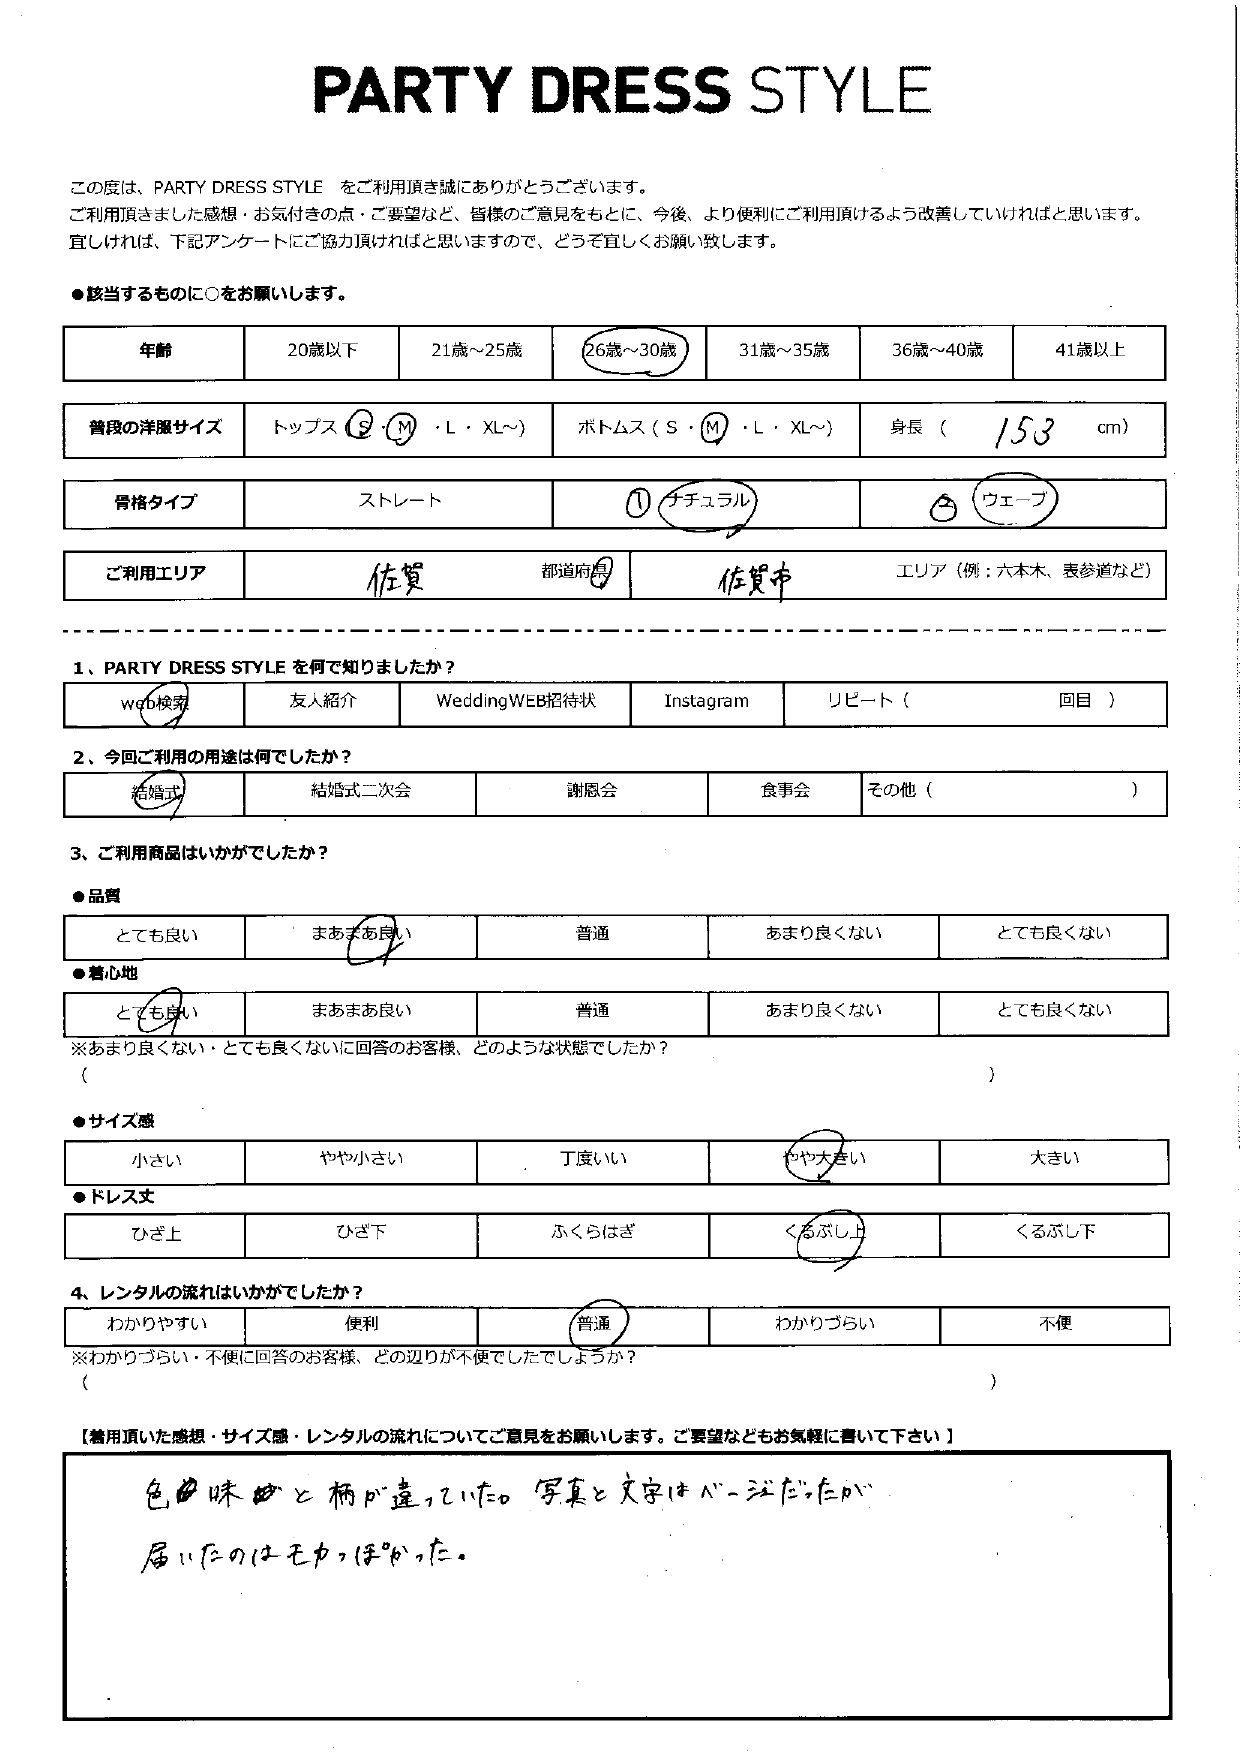 PARTY DRESS STYLE
この度は、PARTY DRESS STYLE　をご利用頂き誠にありがとうございます。
ご利用頂きました感想・お気付きの点・ご要望など、皆様のご意見をもとに、今後、より便利にご利用頂けるよう改善していければと思います。
宜しければ、下記アンケートにご協力頂ければと思いますので、どうぞ宜しくお願い致します。
●該当するものに○をお願いします。
年齢 20歳以下 21歳～25歳 26歳～30歳 31歳～35歳 36歳～40歳 41歳以上
普段の洋服サイズ トップス（S・M・L・XL～） ボトムス（S・M・L・XL～） 身長（ 153 cm）
骨格タイプ ストレート ① ナチュラル ② ウェーブ
ご利用エリア 佐賀 都道府県 佐賀市 エリア（例：六本木、表参道など）
1、PARTY DRESS STYLE を何で知りましたか？
web検索 友人紹介 WeddingWEB招待状 Instagram リピート（ 回目 ）
2、今回ご利用の用途は何でしたか？
結婚式 結婚式二次会 謝恩会 食事会 その他（ ）
3、ご利用商品はいかがでしたか？
●品質
とても良い まあまあ良い 普通 あまり良くない とても良くない
●着心地
とても良い まあまあ良い 普通 あまり良くない とても良くない
※あまり良くない・とても良くないに回答のお客様、どのような状態でしたか？
（ ）
●サイズ感
小さい やや小さい 丁度いい やや大きい 大きい
●ドレス丈
ひざ上 ひざ下 ふくらはぎ くるぶし上 くるぶし下
4、レンタルの流れはいかがでしたか？
わかりやすい 便利 普通 わかりづらい 不便
※わかりづらい・不便に回答のお客様、どの辺りが不便でしたでしょうか？
（ ）
【着用頂いた感想・サイズ感・レンタルの流れについてご意見をお願いします。ご要望などもお気軽に書いて下さい 】
色味と柄が違っていた。写真と文字はベージュだったが
届いたのはモカっぽかった。